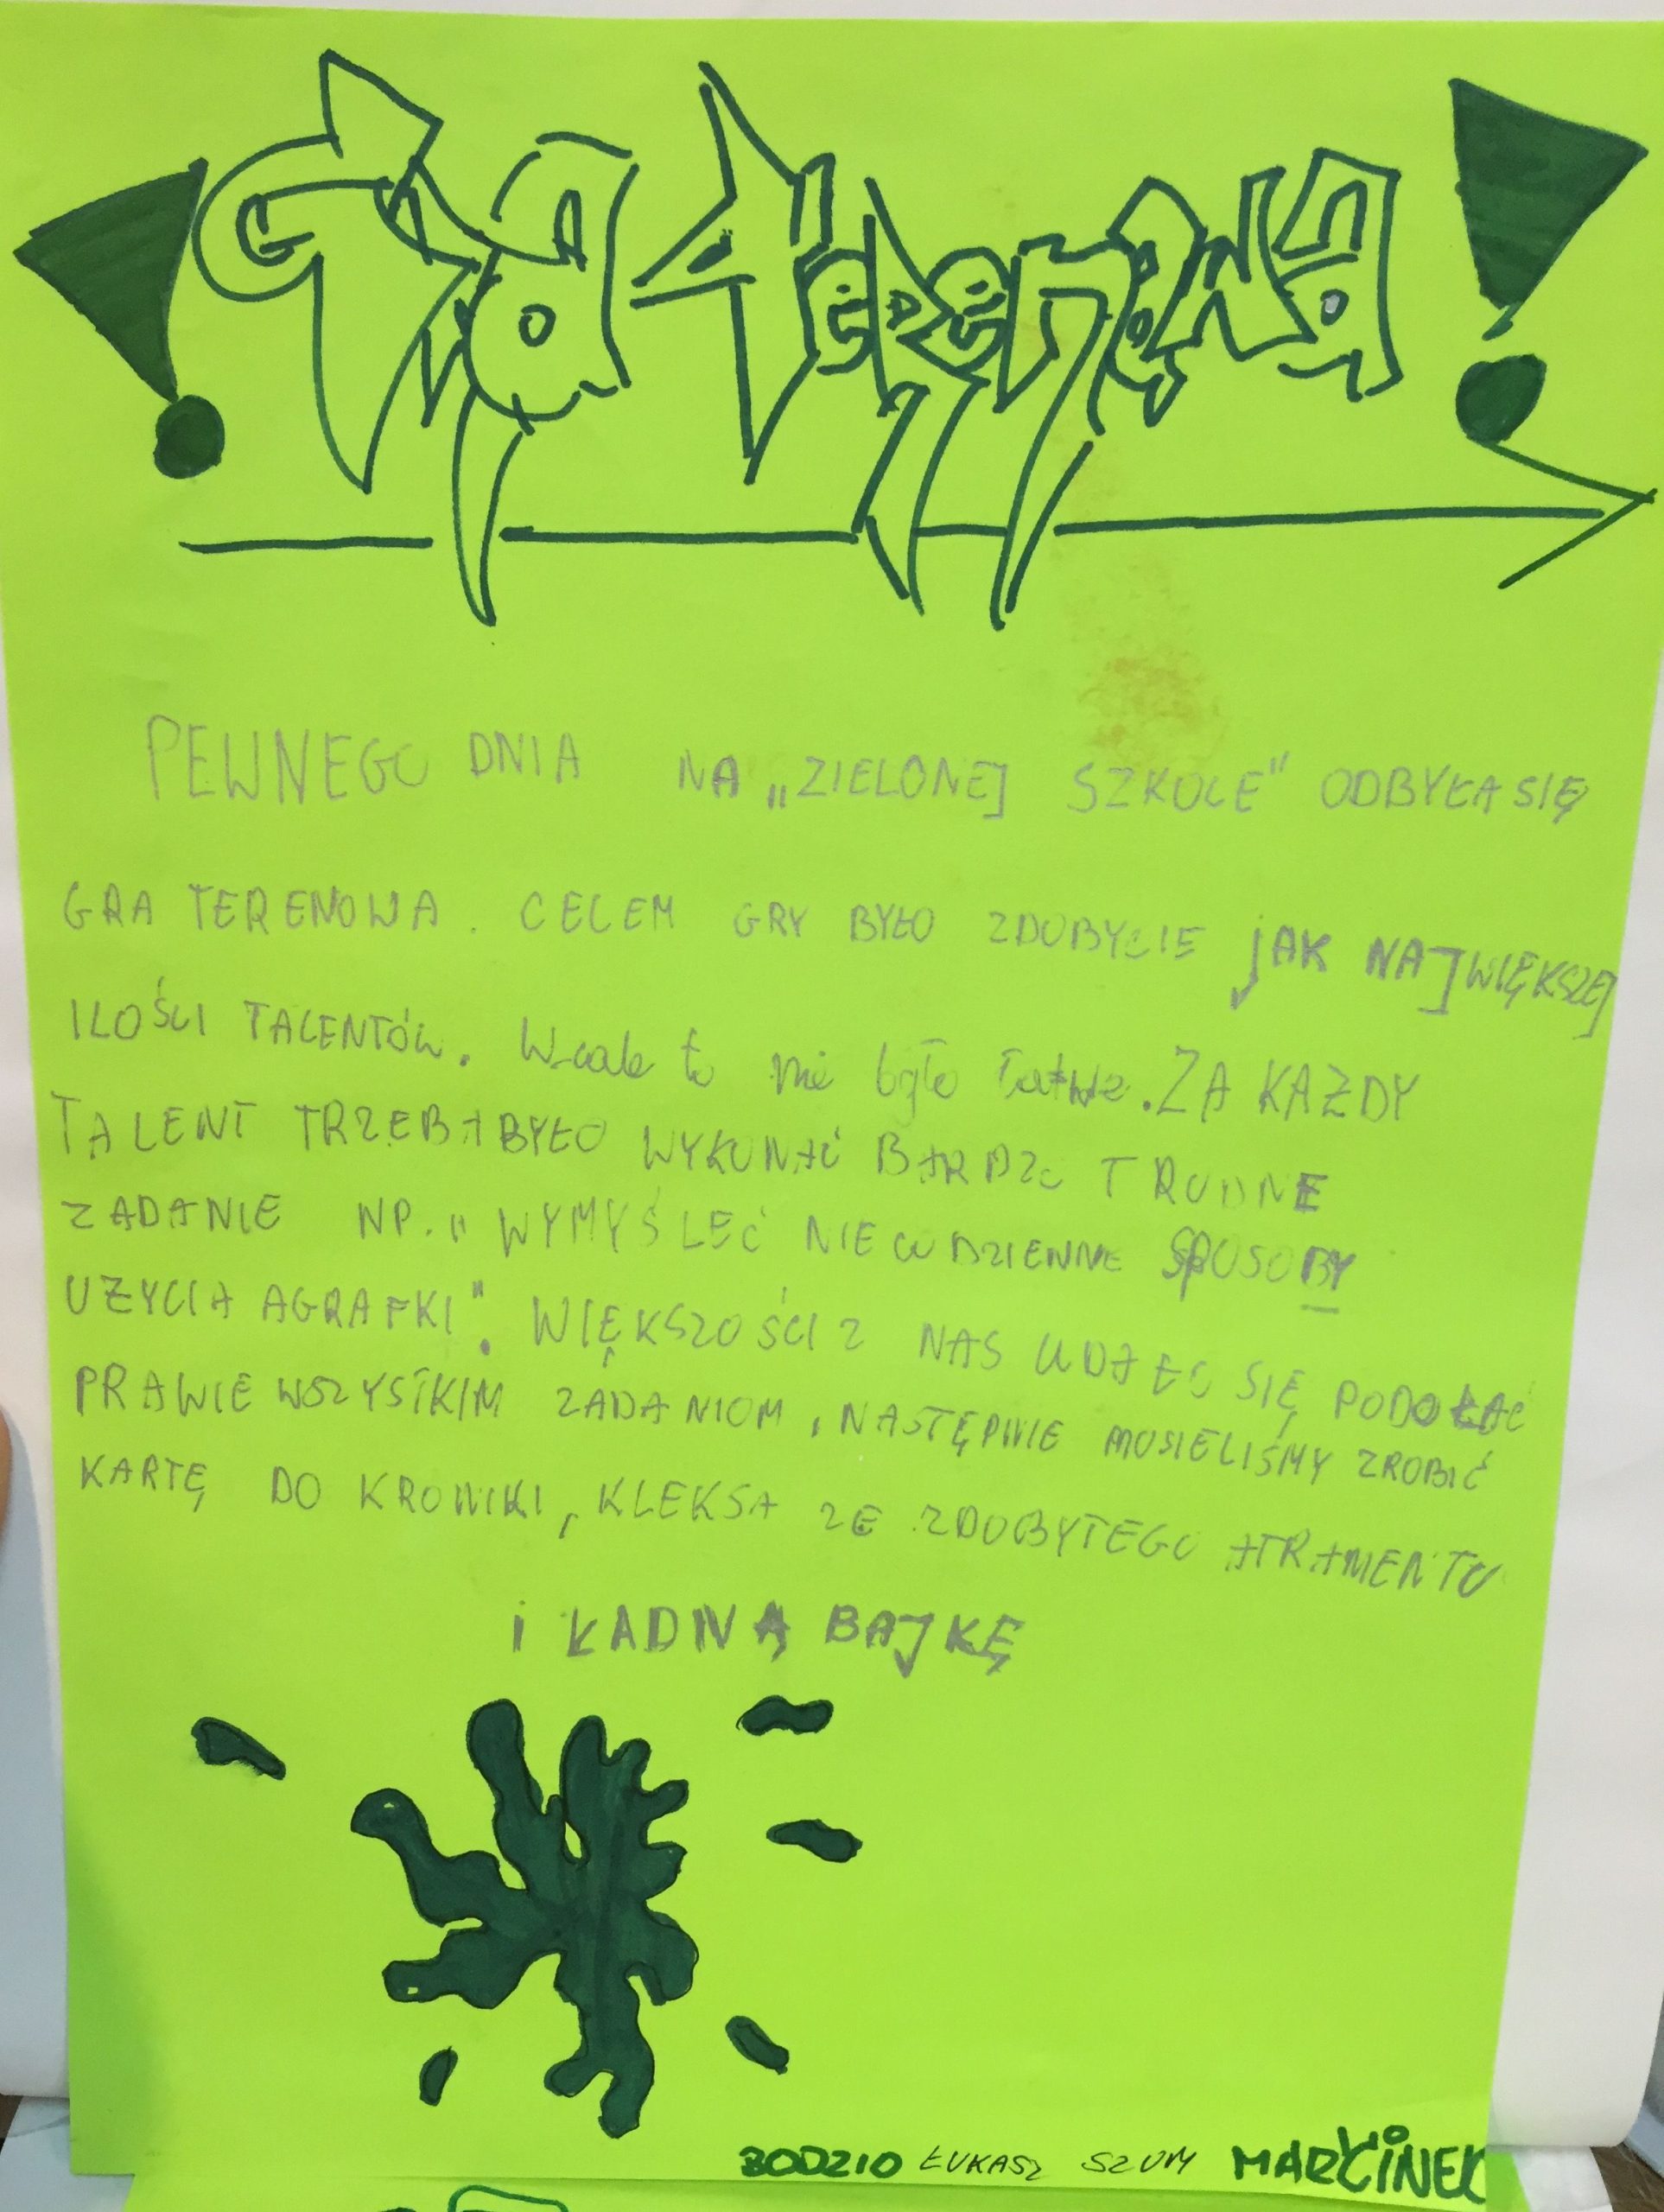 Gra terenowa!
PEWNEGO DNIA NA „ZIELONEJ SZKOLE" ODBYŁA SIĘ
GRA TERENOWA. CELEM GRY BYŁO ZDOBYCIE jAK NAJWIĘKSZEJ
ILOŚCI TALENTÓW. Wcale to nie było łatwe. ZA KAŻDY
TALENT TRZEBA BYŁO WYKONAĆ BARDZO TRUDNE
ZADANIE NP. „WYMYŚLEĆ NIECODZIENNE SPOSOBY
UŻYCIA AGRAFKI". WIĘKSZOŚCI Z NAS UDAŁO SIĘ PODOŁAĆ
PRAWIE WSZYSTKIM ZADANIOM, NASTĘPNIE MUSIELIŚMY ZROBIĆ
KARTĘ DO KRONIKI, KLEKSA ZE ZDOBYTEGO ATRAMENTU
i ŁADNĄ BAJKĘ
BODZIO ŁUKASZ SZUM MARCINEK